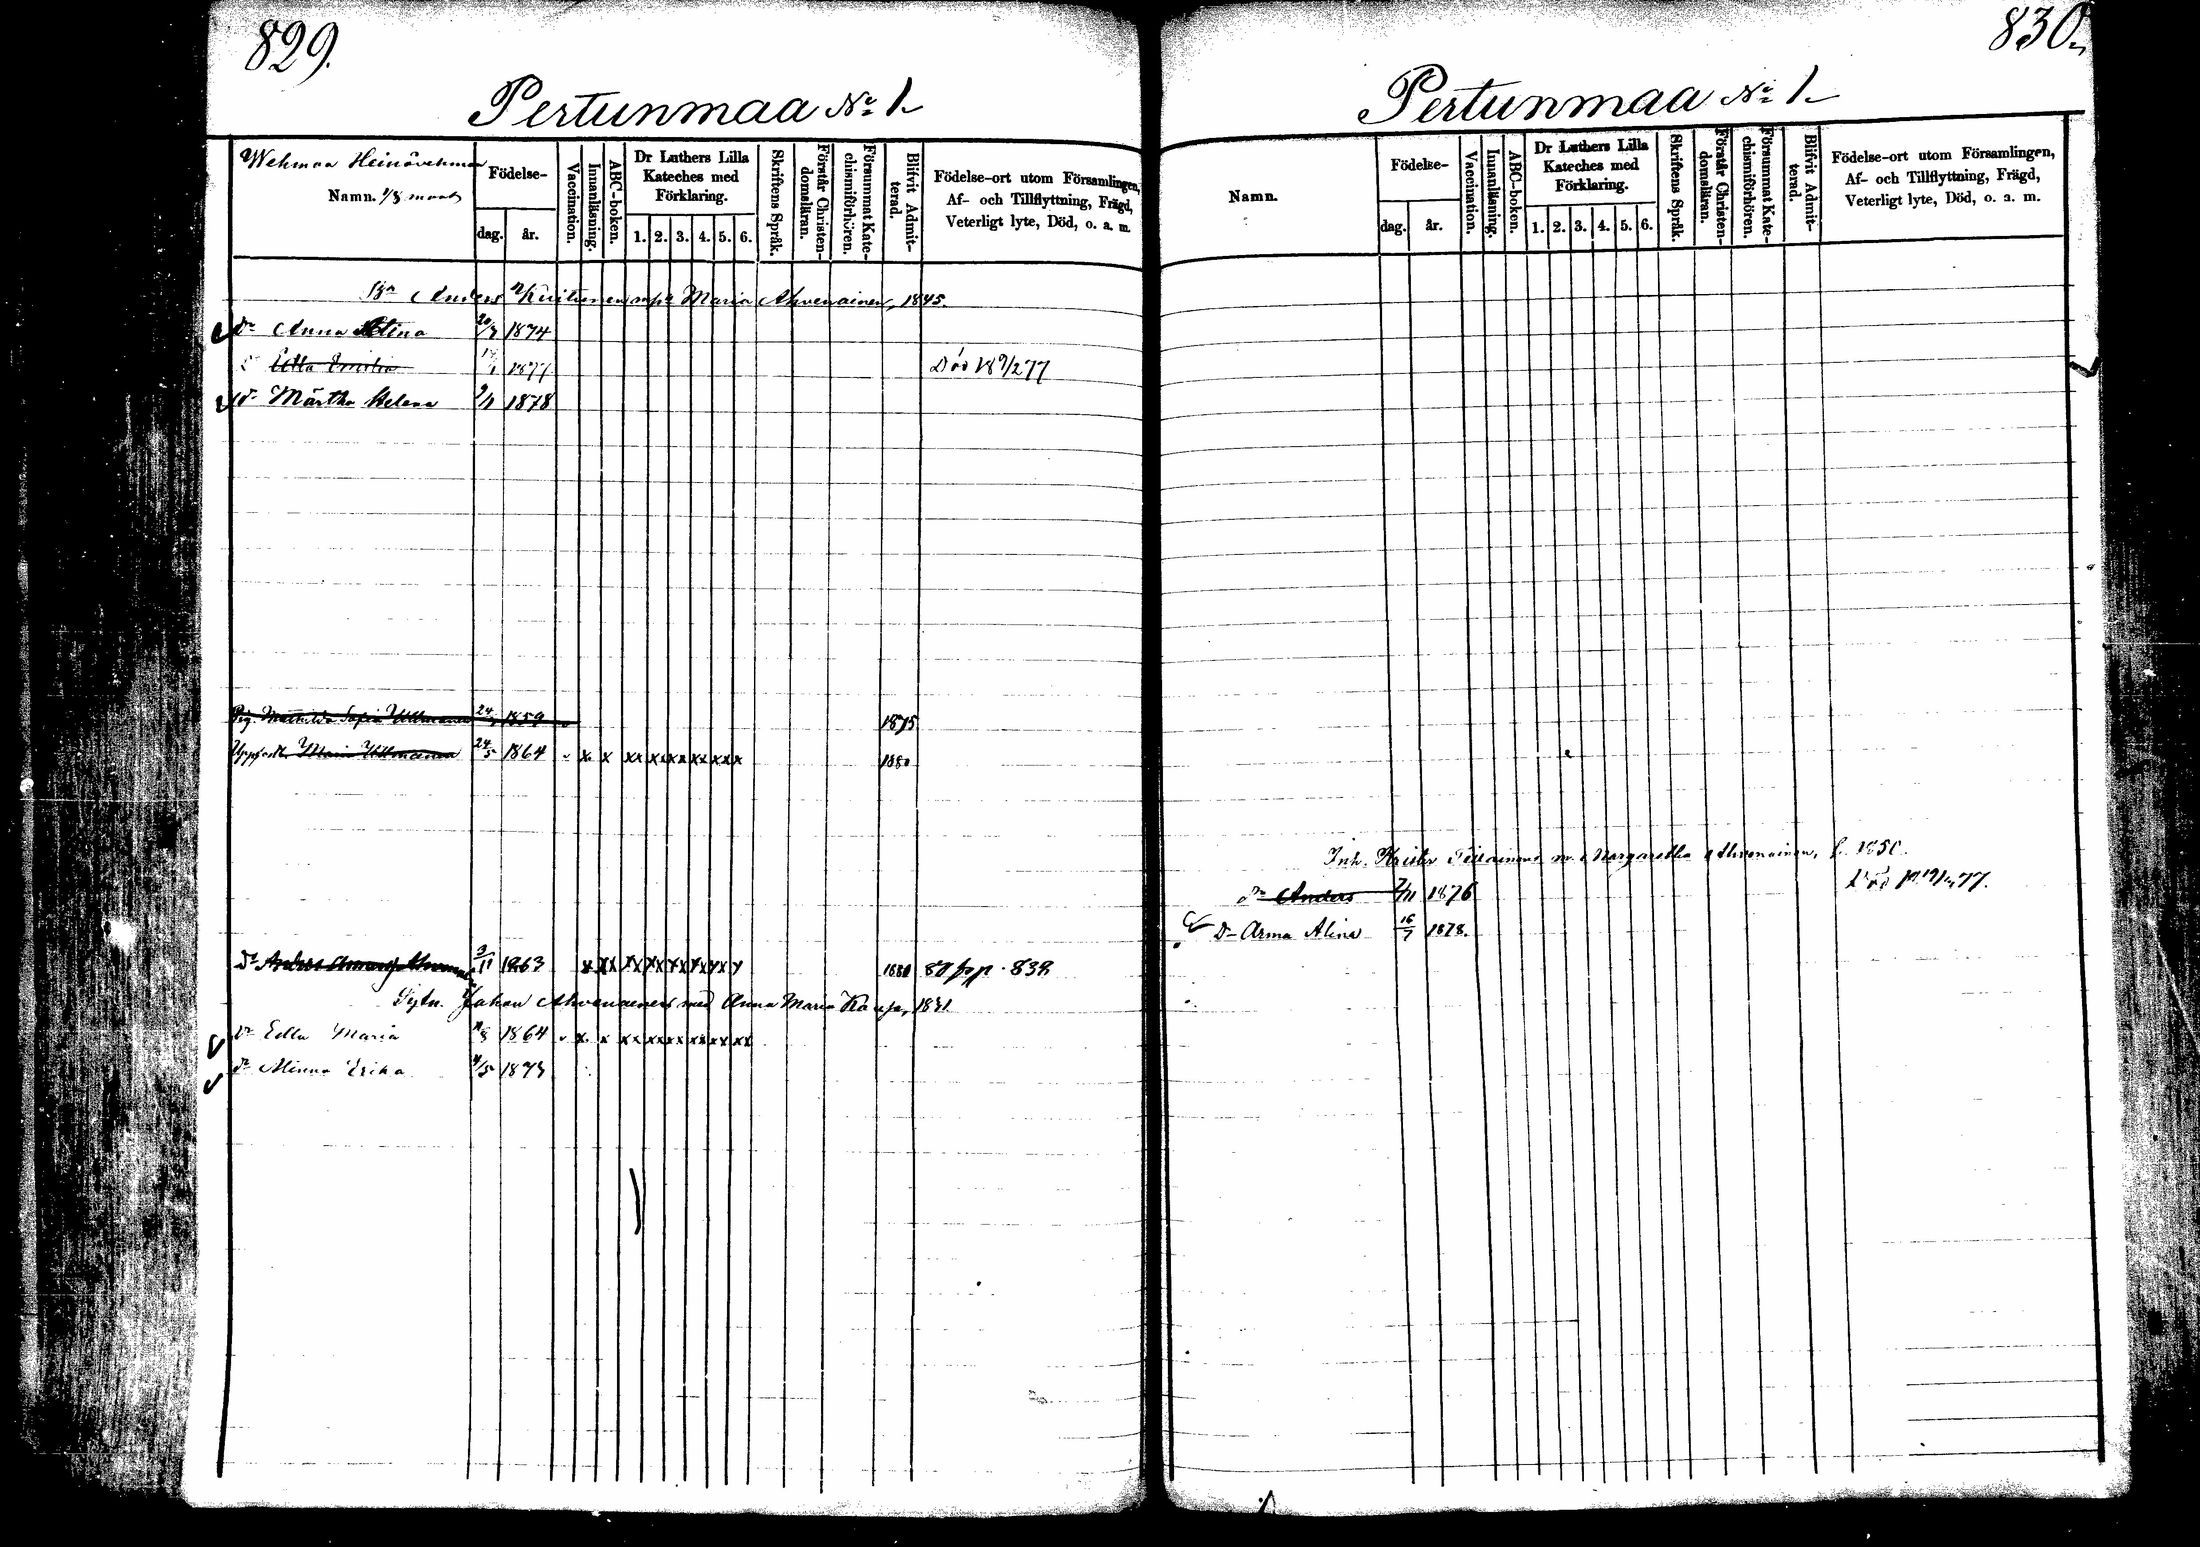 829.
Pertunmaa No 1
Wehmaa Heinävehmaa
Namn. 1/8 mant
Födelse-
dag. år.
Vaccination.
Innanläsning.
ABC-boken.
Dr Luthers Lilla Kateches med Förklaring.
1. 2. 3. 4. 5. 6.
Skriftens Språk.
Förstår Christendomsläran.
Försummat Katechismiförhören.
Blifvit Admitterad.
Födelse-ort utom Församlingen,
Af- och Tillflyttning, Frägd,
Veterligt lyte, Död, o. a. m.
Anders Maria Ahvenainen, 1845.
Dr Anna Alina 20/7 1874
Edla Emilia 1877 Död 18 9/2 77
Dr Märtha Helena 9/11 1878
Pig. Mathilda Sofia Ullmanen 24 1859 1875
Maria Ullmanen 24/5 1864 x x xx xx xx xx xx x 1880
3/11 1863 x xx xx xx xx xx xx x 1880 81 pag. 832
Johan Ahvenainen med Anna Maria 1831
Dr Edla Maria 1864 x x xx xx xx xx xx xx
Dr Minna Erika 4/5 1873
830.
Pertunmaa No 1
Namn.
Födelse-
dag. år.
Vaccination.
Innanläsning.
ABC-boken.
Dr Luthers Lilla Kateches med Förklaring.
1. 2. 3. 4. 5. 6.
Skriftens Språk.
Förstår Christendomsläran.
Försummat Katechismiförhören.
Blifvit Admitterad.
Födelse-ort utom Församlingen,
Af- och Tillflyttning, Frägd,
Veterligt lyte, Död, o. a. m.
Inh. Krister m. Margaretha Ahvenainen, f. 1850.
Anders 7/11 1876 Död 77.
Dr Anna Alina 16/7 1878.